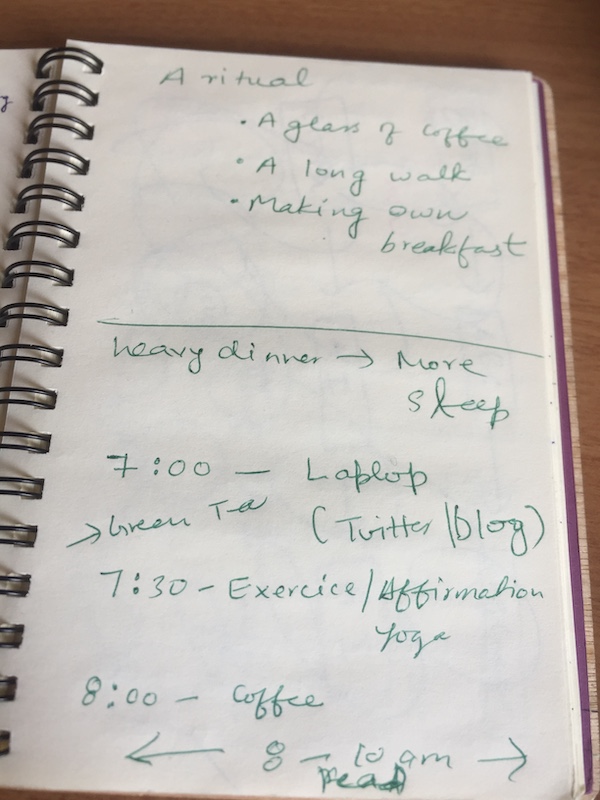 A ritual
• A glass of coffee
• A long walk
• Making own
breakfast
heavy dinner → More
sleep
7:00 — Laptop
→ Green Tea (Twitter/blog)
7:30 - Exercice/Affirmation
Yoga
8:00 - Coffee
← 8 - 10 am →
read